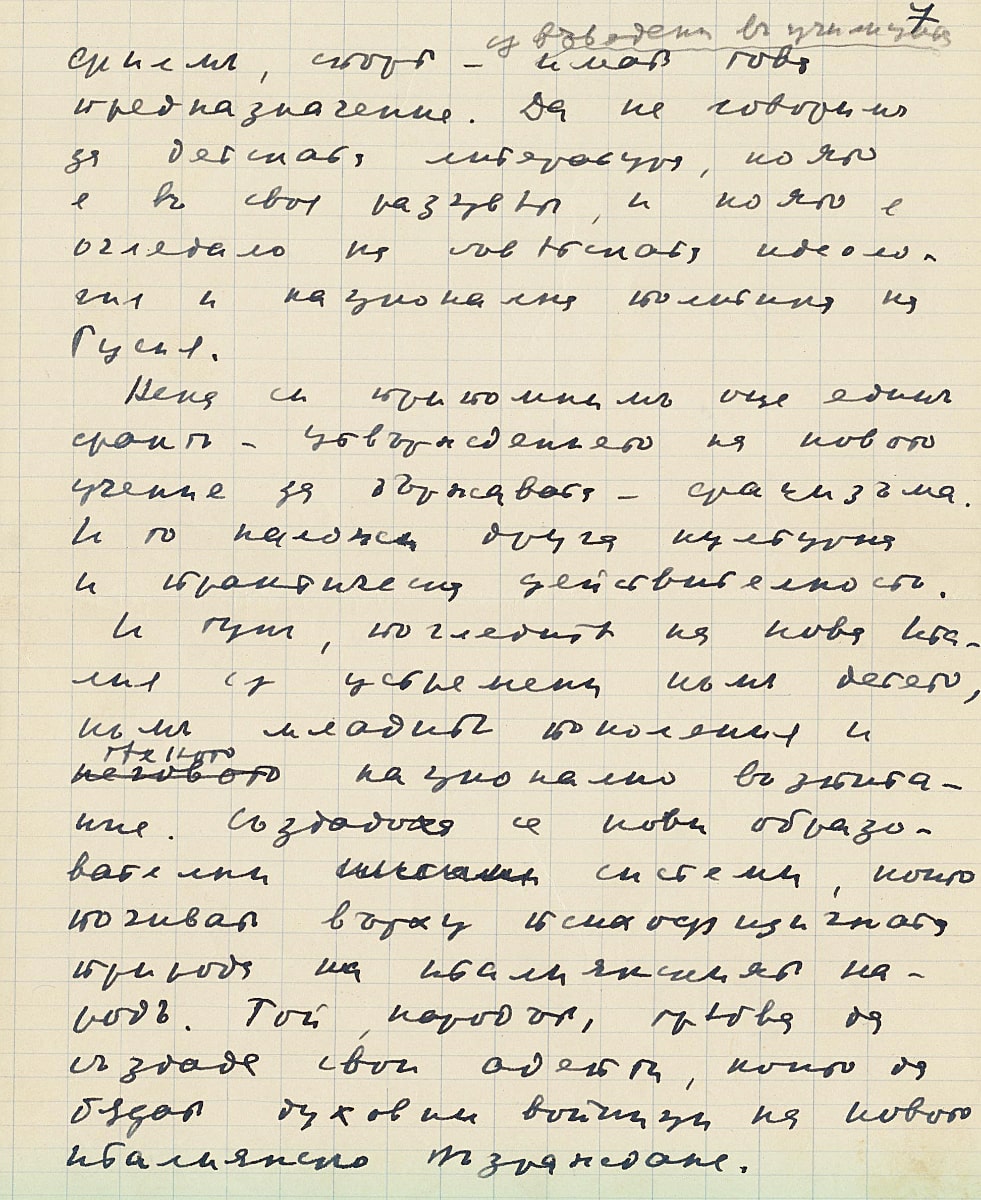 7
су въведени въ училищата
филмъ, спорт – имат това
предназначение. Да не говоримъ
за детската литература, която
е въ своя разцвѣтъ, и която е
огледало на совѣтската идеоло-
гия и национална политика на
Русия.
Нека си припомнимъ още единъ
фактъ – утвърждението на новото
учение за държавата – фашизъма.
И то наложи друга културна
и практическа действителность.
И тукъ, погледитѣ на нова Ита-
лия су устремени към детето,
към младитѣ поколения и
тяхното
неговото национално възпита-
ние. Създадоха се нови образо-
вателни системи, които
почиват върху психофизичната
природа на италиянският на-
родъ. Той, народът, трѣбва да
създаде свои адепти, които да
бъдат духовни войници на новото
италиянско възраждане.